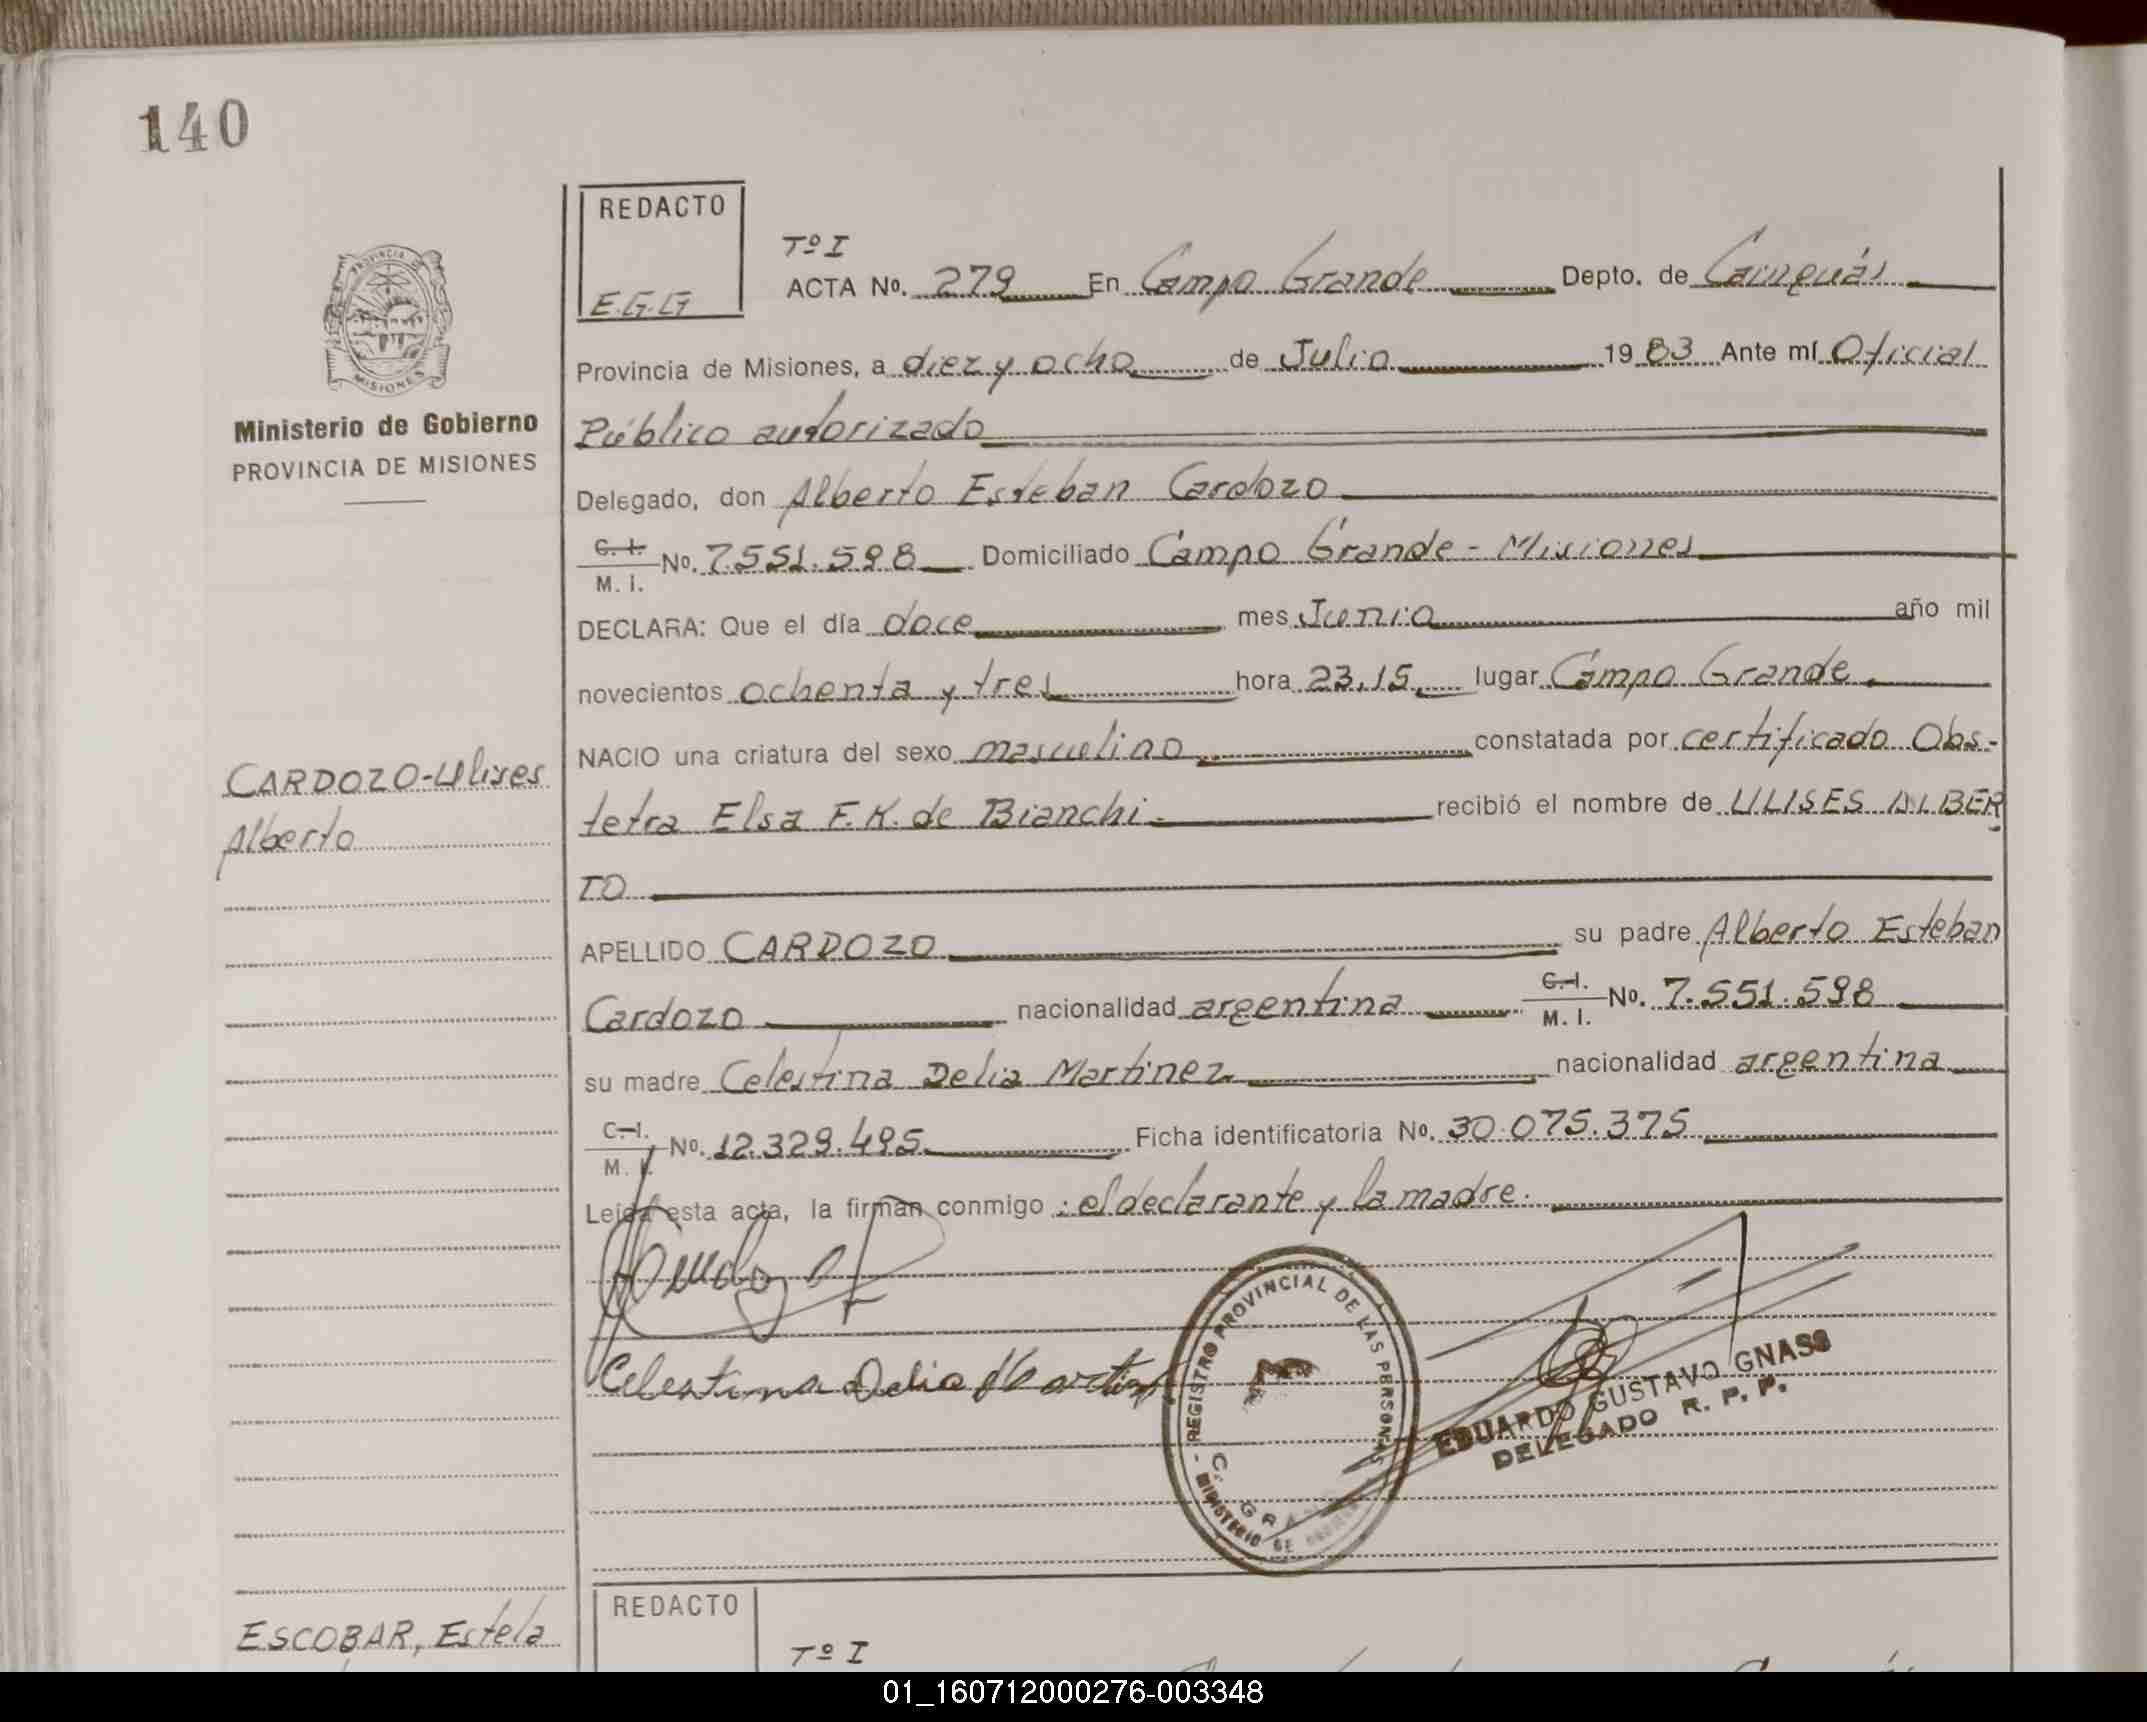 140
REDACTO
E.G.G
PROVINCIA DE
MISIONES
Ministerio de Gobierno
PROVINCIA DE MISIONES
Tº I
ACTA No. 279 En Campo Grande Depto. de Cainguás
Provincia de Misiones, a diez y ocho de Julio 1983 Ante mí Oficial
Público autorizado
Delegado, don Alberto Esteban Cardozo
C. I. M. I. No. 7.551.598 Domiciliado Campo Grande - Misiones
DECLARA: Que el día doce mes Junio año mil
novecientos ochenta y tres hora 23,15 lugar Campo Grande
NACIO una criatura del sexo masculino constatada por certificado Obs-
CARDOZO-Ulises
Alberto
tetra Elsa F.K. de Bianchi.- recibió el nombre de ULISES ALBER
TO
APELLIDO CARDOZO su padre Alberto Esteban
Cardozo nacionalidad argentina C. I. M. I. No. 7.551.598
su madre Celestina Delia Martinez nacionalidad argentina
C. I. M. I. No. 12.329.495 Ficha identificatoria No. 30.075.375
Leída esta acta, la firman conmigo : el declarante y la madre.
Celestina Delia Martinez
REGISTRO PROVINCIAL DE LAS PERSONAS
C. GRANDE
MINISTERIO DE
EDUARDO GUSTAVO GNASS
DELEGADO R. P. P.
REDACTO
ESCOBAR, Estela
Tº I
01_160712000276-003348